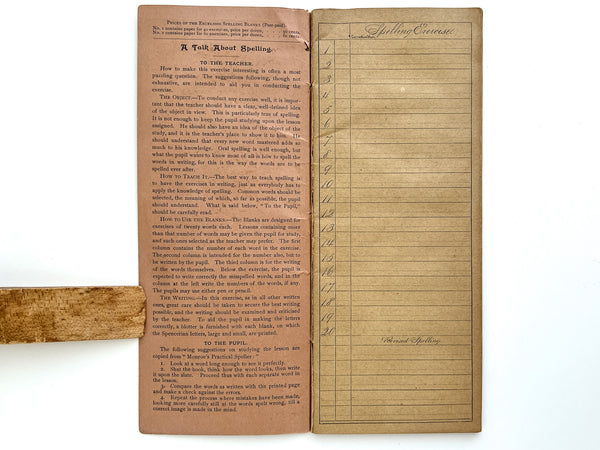 PRICES OF THE EXCELSIOR SPELLING BLANKS (Post-paid).
No. 1 contains paper for 40 exercises, price per dozen,
No. 2 contains paper for 60 exercises, price per dozen,
A Talk About Spelling.
TO THE TEACHER.
How to make this exercise interesting is often a most
puzzling question. The suggestions following, though not
exhaustive, are intended to aid you in conducting the
exercise.
THE OBJECT.—To conduct any exercise well, it is impor-
tant that the teacher should have a clear, well-defined idea
of the object in view. This is particularly true of spelling.
It is not enough to keep the pupil studying upon the lesson
assigned. He should also have an idea of the object of the
study, and it is the teacher's place to show it to him. He
should understand that every new word mastered adds so
much to his knowledge. Oral spelling is well enough, but
what the pupil wants to know most of all is how to spell the
words in writing, for this is the way the words are to be
spelled ever after.
HOW TO TEACH IT.—The best way to teach spelling is
to have the exercises in writing, just as everybody has to
apply the knowledge of spelling. Common words should be
selected, the meaning of which, so far as possible, the pupil
should understand. What is said below, "To the Pupil,"
should be carefully read.
HOW TO USE THE BLANKS.—The Blanks are designed for
exercises of twenty words each. Lessons containing more
than that number may be given the pupil for study,
and such ones selected as the teacher may prefer. The first
column contains the number of each word in the exercise.
The second column is intended for the number also, but to
be written by the pupil. The third column is for the writing
of the words themselves. Below the exercise, the pupil is
expected to write correctly the misspelled words, and in the
column at the left write the numbers of the words, if any.
The pupils may use either pen or pencil.
THE WRITING.—In this exercise, as in all other written
ones, great care should be taken to secure the best writing
possible, and the writing should be examined and criticised
by the teacher. To aid the pupil in making the letters
correctly, a blotter is furnished with each blank, on which
the Spencerian letters, large and small, are printed.
TO THE PUPIL.
The following suggestions on studying the lesson are
copied from "Monroe's Practical Speller:"
1. Look at a word long enough to see it perfectly.
2. Shut the book, think how the word looks, then write
it upon the slate. Proceed thus with each separate word in
the lesson.
3. Compare the words as written with the printed page
and make a check against the errors.
4. Repeat the process where mistakes have been made,
looking more carefully still at the words spelt wrong, till a
correct image is made in the mind.
Spelling Exercise.
1
2
3
4
5
6
7
8
9
10
11
12
13
14
15
16
17
18
19
20
Spelling.